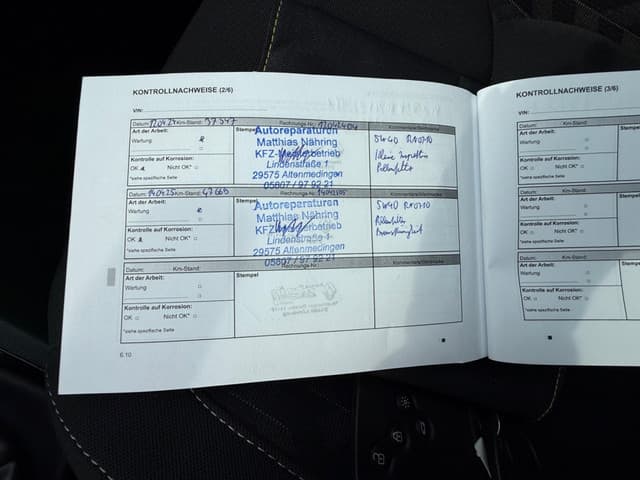 KONTROLLNACHWEISE (2/6)
VIN:
Datum: 120424 Km-Stand: 37347 Rechnungs-Nr.: 12042404 Kommentare/Merkmale
Art der Arbeit:
Wartung
Kontrolle auf Korrosion:
OK Nicht OK*
*siehe spezifische Seite
Stempel
Autoreparaturen
Matthias Nähring
KFZ-Meisterbetrieb
Lindenstraße 1
29575 Altenmedingen
05807 / 97 92 21
5W40 RN0710
Kleine Inspektion
Pollenfilter
Datum: 140425 Km-Stand: 47669 Rechnungs-Nr.: Kommentare/Merkmale
Art der Arbeit:
Wartung
Kontrolle auf Korrosion:
OK Nicht OK*
*siehe spezifische Seite
Autoreparaturen
Matthias Nähring
KFZ-Meisterbetrieb
Lindenstraße 1
29575 Altenmedingen
05807 / 97 92 21
5W40 RN0710
Pollenfilter
Bremsflüssigkeit
Datum: Km-Stand: Rechnungs-Nr.: Kommentare/Merkmale
Art der Arbeit:
Wartung
Kontrolle auf Korrosion:
OK Nicht OK*
*siehe spezifische Seite
Stempel
6.10
KONTROLLNACHWEISE (3/6)
VIN:
Datum: Km-Stand:
Art der Arbeit:
Wartung
Kontrolle auf Korrosion:
OK Nicht OK*
*siehe spezifische Seite
Datum: Km-Stand:
Art der Arbeit:
Wartung
Kontrolle auf Korrosion:
OK Nicht OK*
*siehe spezifische Seite
Datum: Km-Stand:
Art der Arbeit:
Wartung
Kontrolle auf Korrosion:
OK Nicht OK*
*siehe spezifische Seite